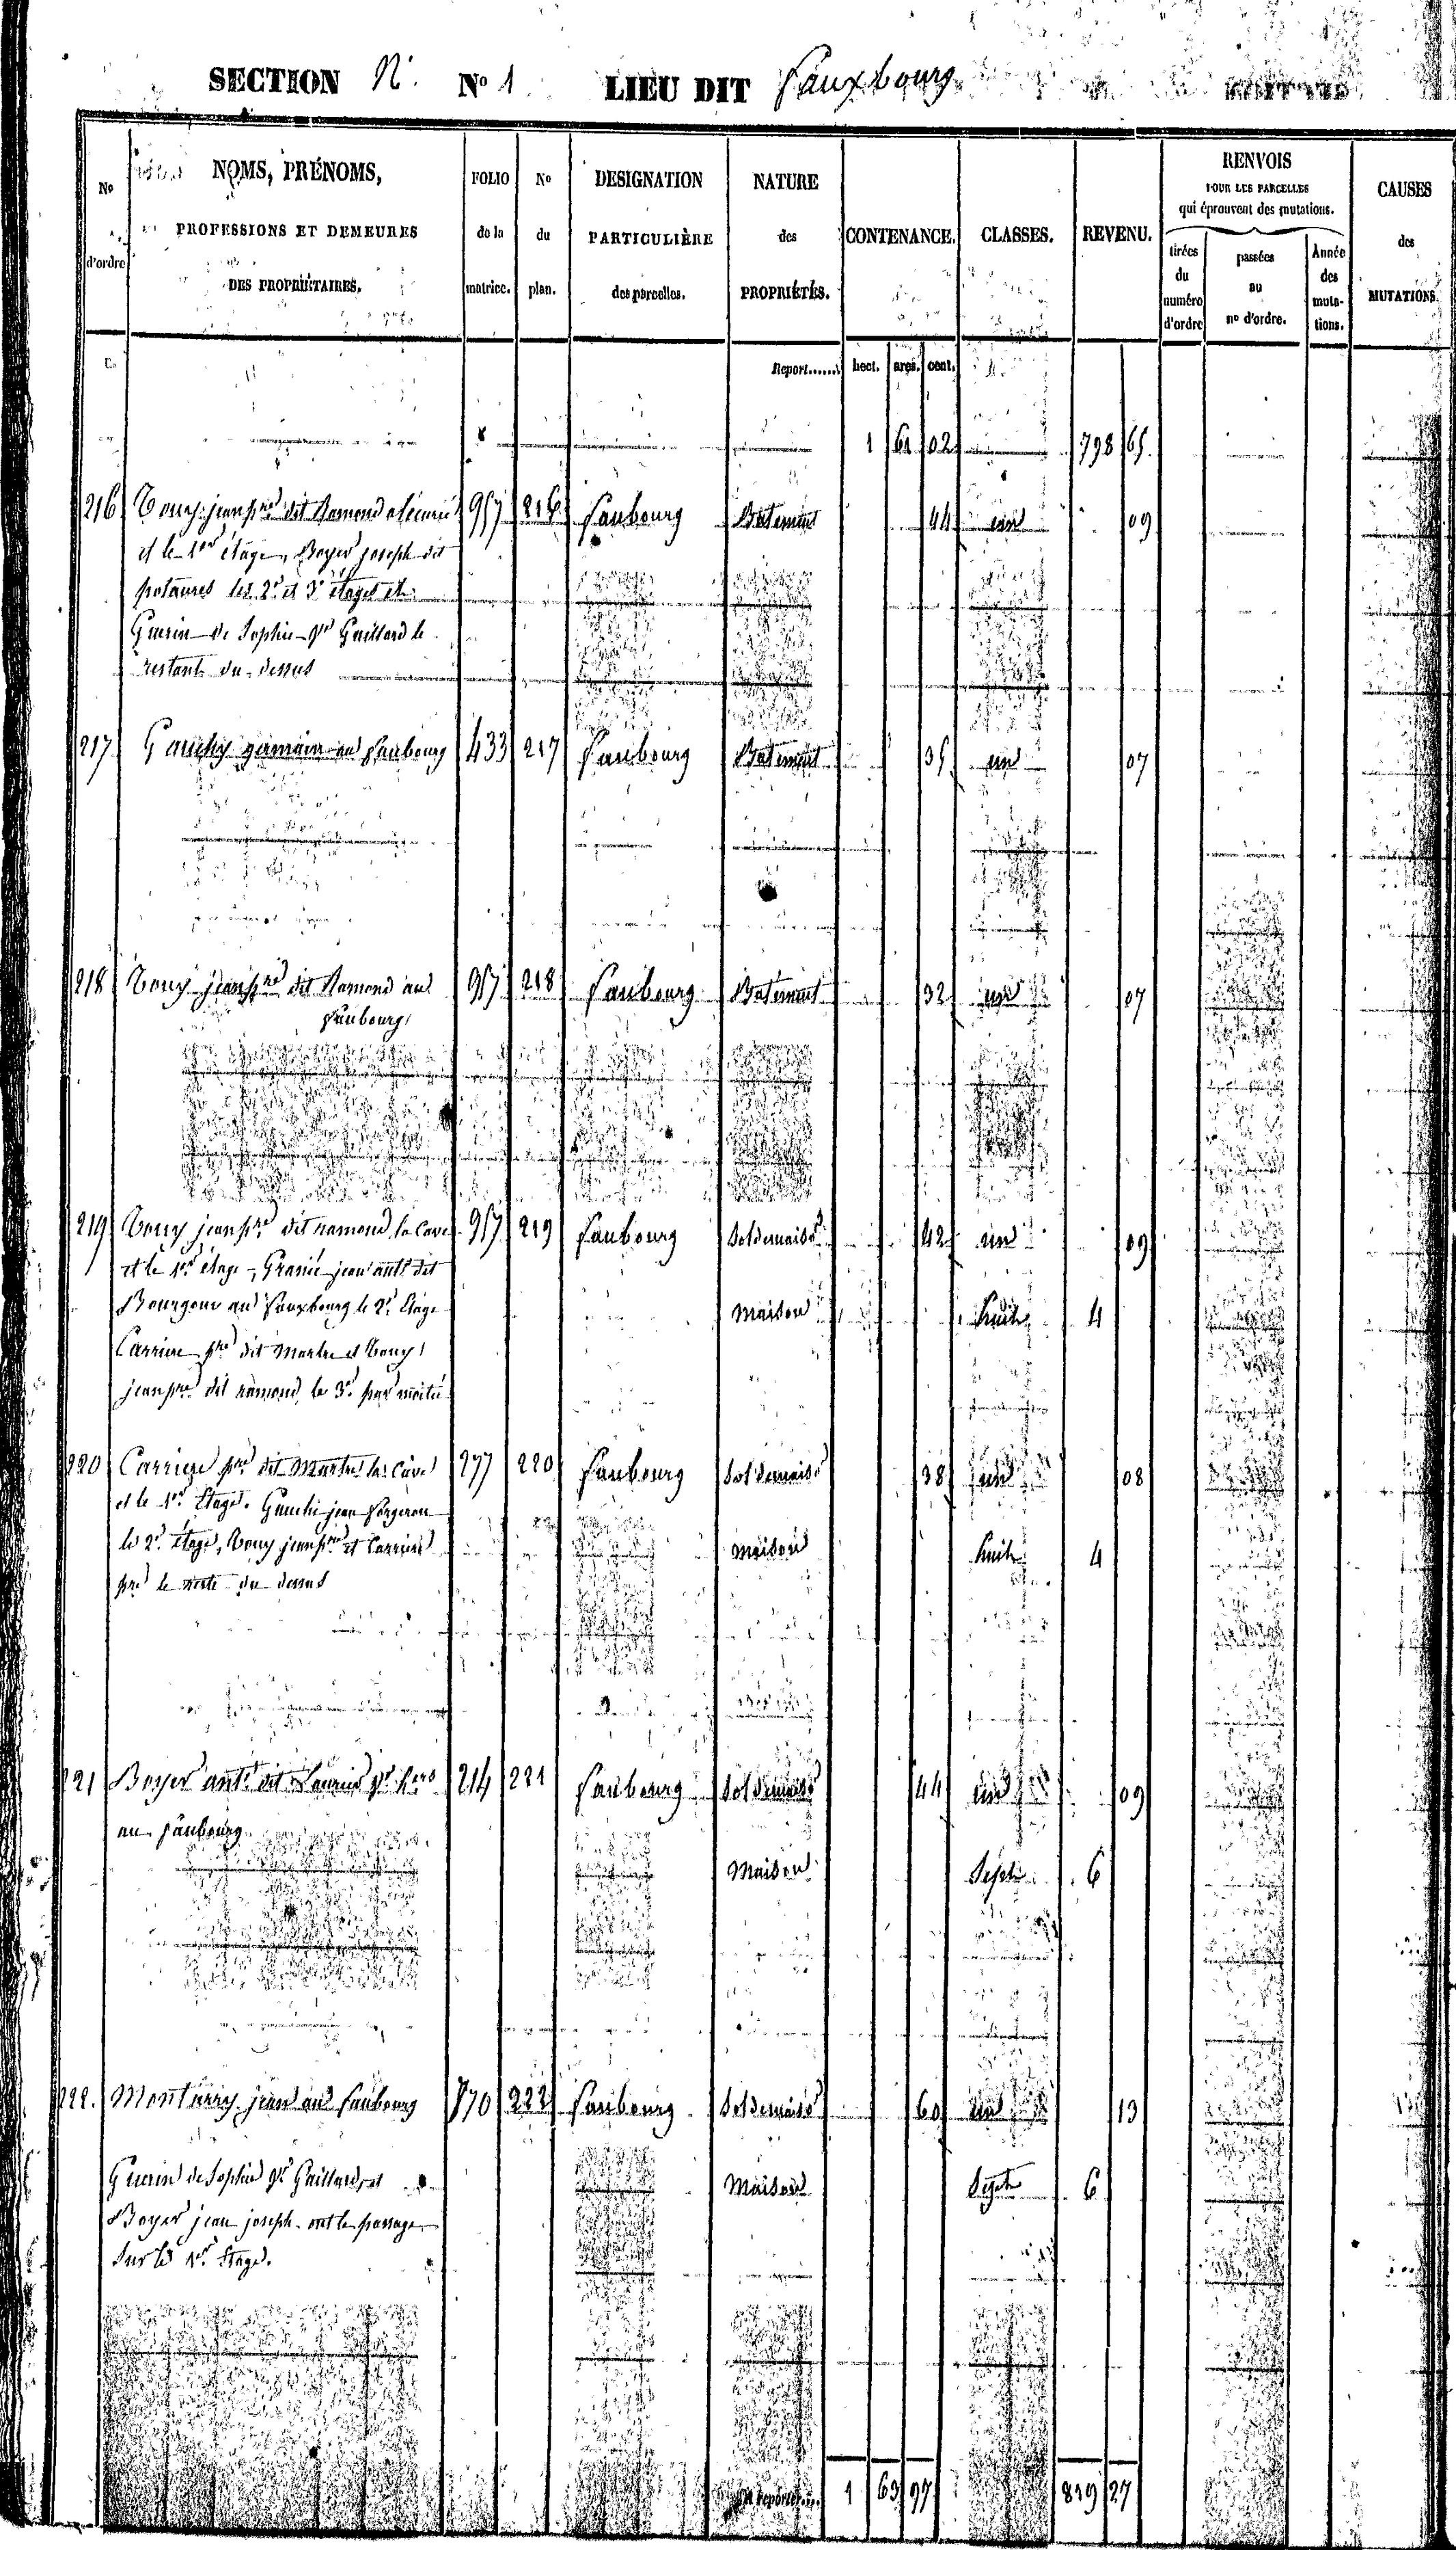 SECTION N. No 1 LIEU DIT Fauxbourg
No d'ordre
NOMS, PRÉNOMS,
PROFESSIONS ET DEMEURES
DES PROPRIÉTAIRES.
FOLIO de la matrice.
No du plan.
DESIGNATION PARTICULIÈRE des parcelles.
NATURE des PROPRIÉTÉS.
CONTENANCE.
CLASSES.
REVENU.
RENVOIS
POUR LES PARCELLES
qui éprouvent des mutations.
tirées du numéro d'ordre
passées au no d'ordre.
Année des muta-tions.
CAUSES des MUTATIONS.
Report...... hect. ares. cent.
1 61 02 798 65
216 jean pre dit Ramond 957 216 faubourg Batiment 44 un 09
et le 1er étage, Boyer joseph dit
les 2e et 3e étages et
Guerin de Sophie pr Gaillard le
restant du dessus
217 germain au faubourg 433 217 faubourg Batiment 35 un 07
218 jean pre dit Ramond au 957 218 faubourg Batiment 32 un 07
faubourg
219 jean pre dit ramond la cave 957 219 faubourg Sol de maison 42 un 09
et le 1er étage, Granié jean ant. dit
au fauxbourg le 2e étage Maison huit 4
Carriere pre dit Martre et
jean pre dit ramond le 3e par moitié
220 Carriere pre dit Martre la cave 277 220 faubourg Sol de maison 38 un 08
et le 1er étage. jean forgeron
le 2e étage, jean pre et Carriere Maison huit 4
pre le reste du dessus
221 Boyer ant. dit 214 221 faubourg Sol de maison 44 un 09
au faubourg
Maison Sept 6
222. jean au faubourg 870 222 faubourg Sol de maison 60 un 13
Guerin de Sophie pr Gaillard et Maison Sept 6
Boyer jean joseph ont le passage
sur le 1er étage.
A reporter... 1 63 97 819 27